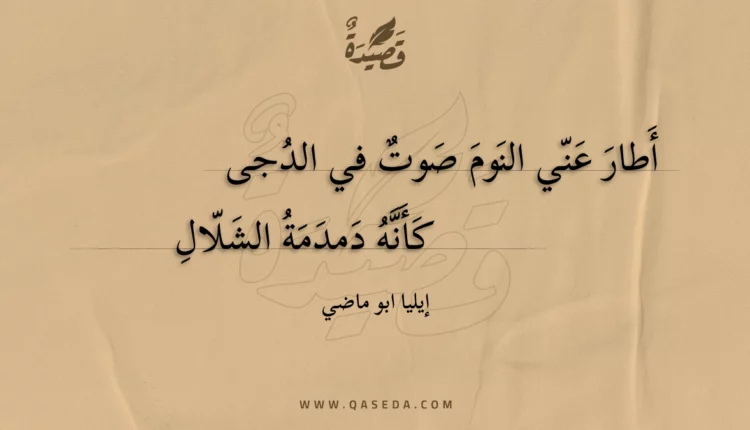 قَصِيْدَةٌ
أَطارَ عَنّي النَومَ صَوتٌ في الدُجى
كَأَنَّهُ دَمدَمَةُ الشَلّالِ
إيليا ابو ماضي
WWW.QASEDA.COM